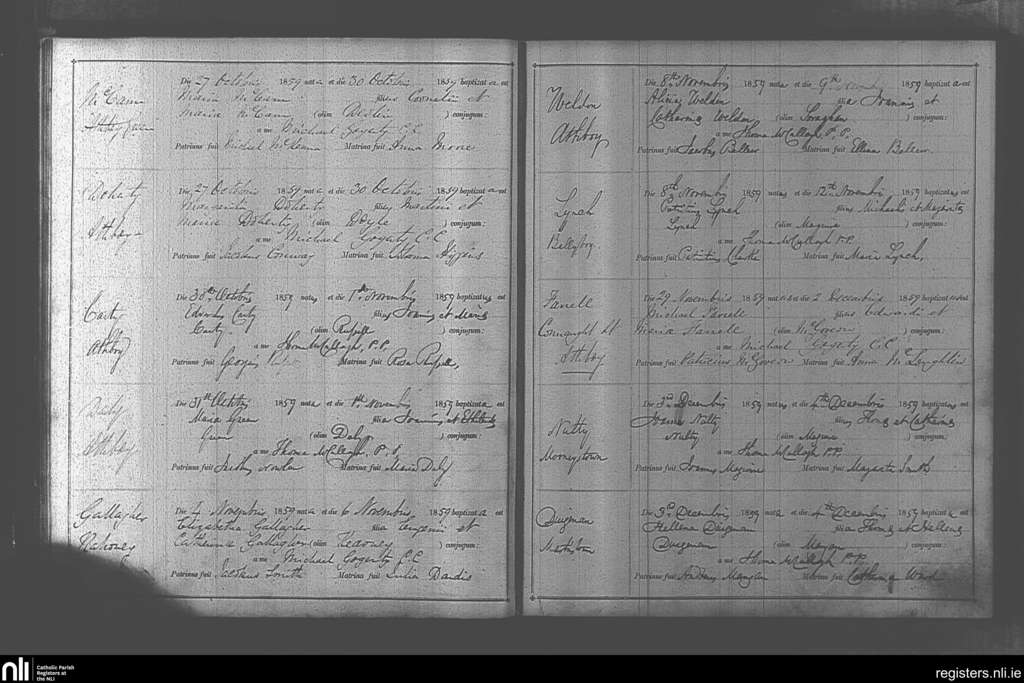 McCann
Athboy
Die 27 Octobris 1859 nata et die 30 Octobris 1859 baptizata est
Maria McCann filia Cornelii et
Maria McCann (olim ) conjugum:
a me Michael Gogarty C.C.
Patrinus fuit Michael McKenna Matrina fuit Anna Moore
Doherty
Athboy
Die 27 Octobris 1859 nata et die 30 Octobris 1859 baptizata est
Doherty filia Martini et
Maria Doherty (olim Doyle ) conjugum:
a me Michael Gogarty C.C.
Patrinus fuit Jacobus Conway Matrina fuit Higgins
Carty
Athboy
Die 30th Octobris 1859 natus et die 1st Novembris 1859 baptizatus est
Edwardus Carty filius Joannis et Maria
Carty (olim Russell ) conjugum:
a me Thoma McCullagh, P.P.
Patrinus fuit Georgius Matrina fuit Rosa Russell,
Daly
Athboy
Die 31st Octobris 1859 nata et die 1st Novembris 1859 baptizata est
Maria Green filia Joannis et
Green (olim Daly ) conjugum:
a me Thoma McCullagh, P.P.
Patrinus fuit Nowlan Matrina fuit Maria Daly
Gallagher
Mahoney
Die 4 Novembris 1859 nata et die 6 Novembris, 1859 baptizata est
Elizabetha Gallagher filia et
Catherina Gallagher (olim Kearney ) conjugum:
a me Michael Gogarty C.C.
Patrinus fuit Jacobus Smith Matrina fuit Julia Dardis
Weldon
Athboy
Die 8th Novembris 1859 nata et die 9th Novembris 1859 baptizata est
Weldon filia Joannis et
Catharina Weldon (olim Soraghan ) conjugum:
a me Thoma McCullagh, P.P.
Patrinus fuit Jacobus Matrina fuit Ellena
Lynch
Ballyboy.
Die 8th Novembris 1859 natus et die 12th Novembris 1859 baptizatus est
Lynch filius Michaelis et Margarita
Lynch (olim Maguire ) conjugum:
a me Thoma McCullagh P.P.
Patrinus fuit Clarke Matrina fuit Maria Lynch,
Farrell
Connaught St.
Athboy
Die 29 Novembris 1859 natus et die 2 Decembris 1859 baptizatus est
Michael Farrell filius Edwardi et
Maria Farrell (olim McGovern ) conjugum:
a me Michael Gogarty C.C.
Patrinus fuit Patricius McGovern Matrina fuit Anna McLoughlin
Nulty
Mooneytown
Die 3rd Decembris 1859 natus et die 4th Decembris 1859 baptizatus est
Nulty filius Thoma et Catharina
Nulty (olim Maguire ) conjugum:
a me Thoma McCullagh P.P.
Patrinus fuit Joannes Maguire Matrina fuit Margarita Smith
Duignan
Die 3rd Decembris 1859 nata et die 4th Decembris 1859 baptizata est
Hellena Duignan filia Thoma et Hellena
Duignan (olim Mangan ) conjugum:
a me Thoma McCullagh P.P.
Patrinus fuit Andreas Mangan Matrina fuit Catharina Ward
nli
Catholic Parish
Registers at
the NLI
registers.nli.ie